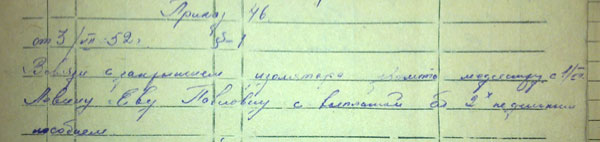 Приказ 46.
от 3/VII-52г. § 1
В связи с закрытием изолятора уволить медсестру с 1/VII
Еву Павловну с выплатой ей 2х недельным
пособием